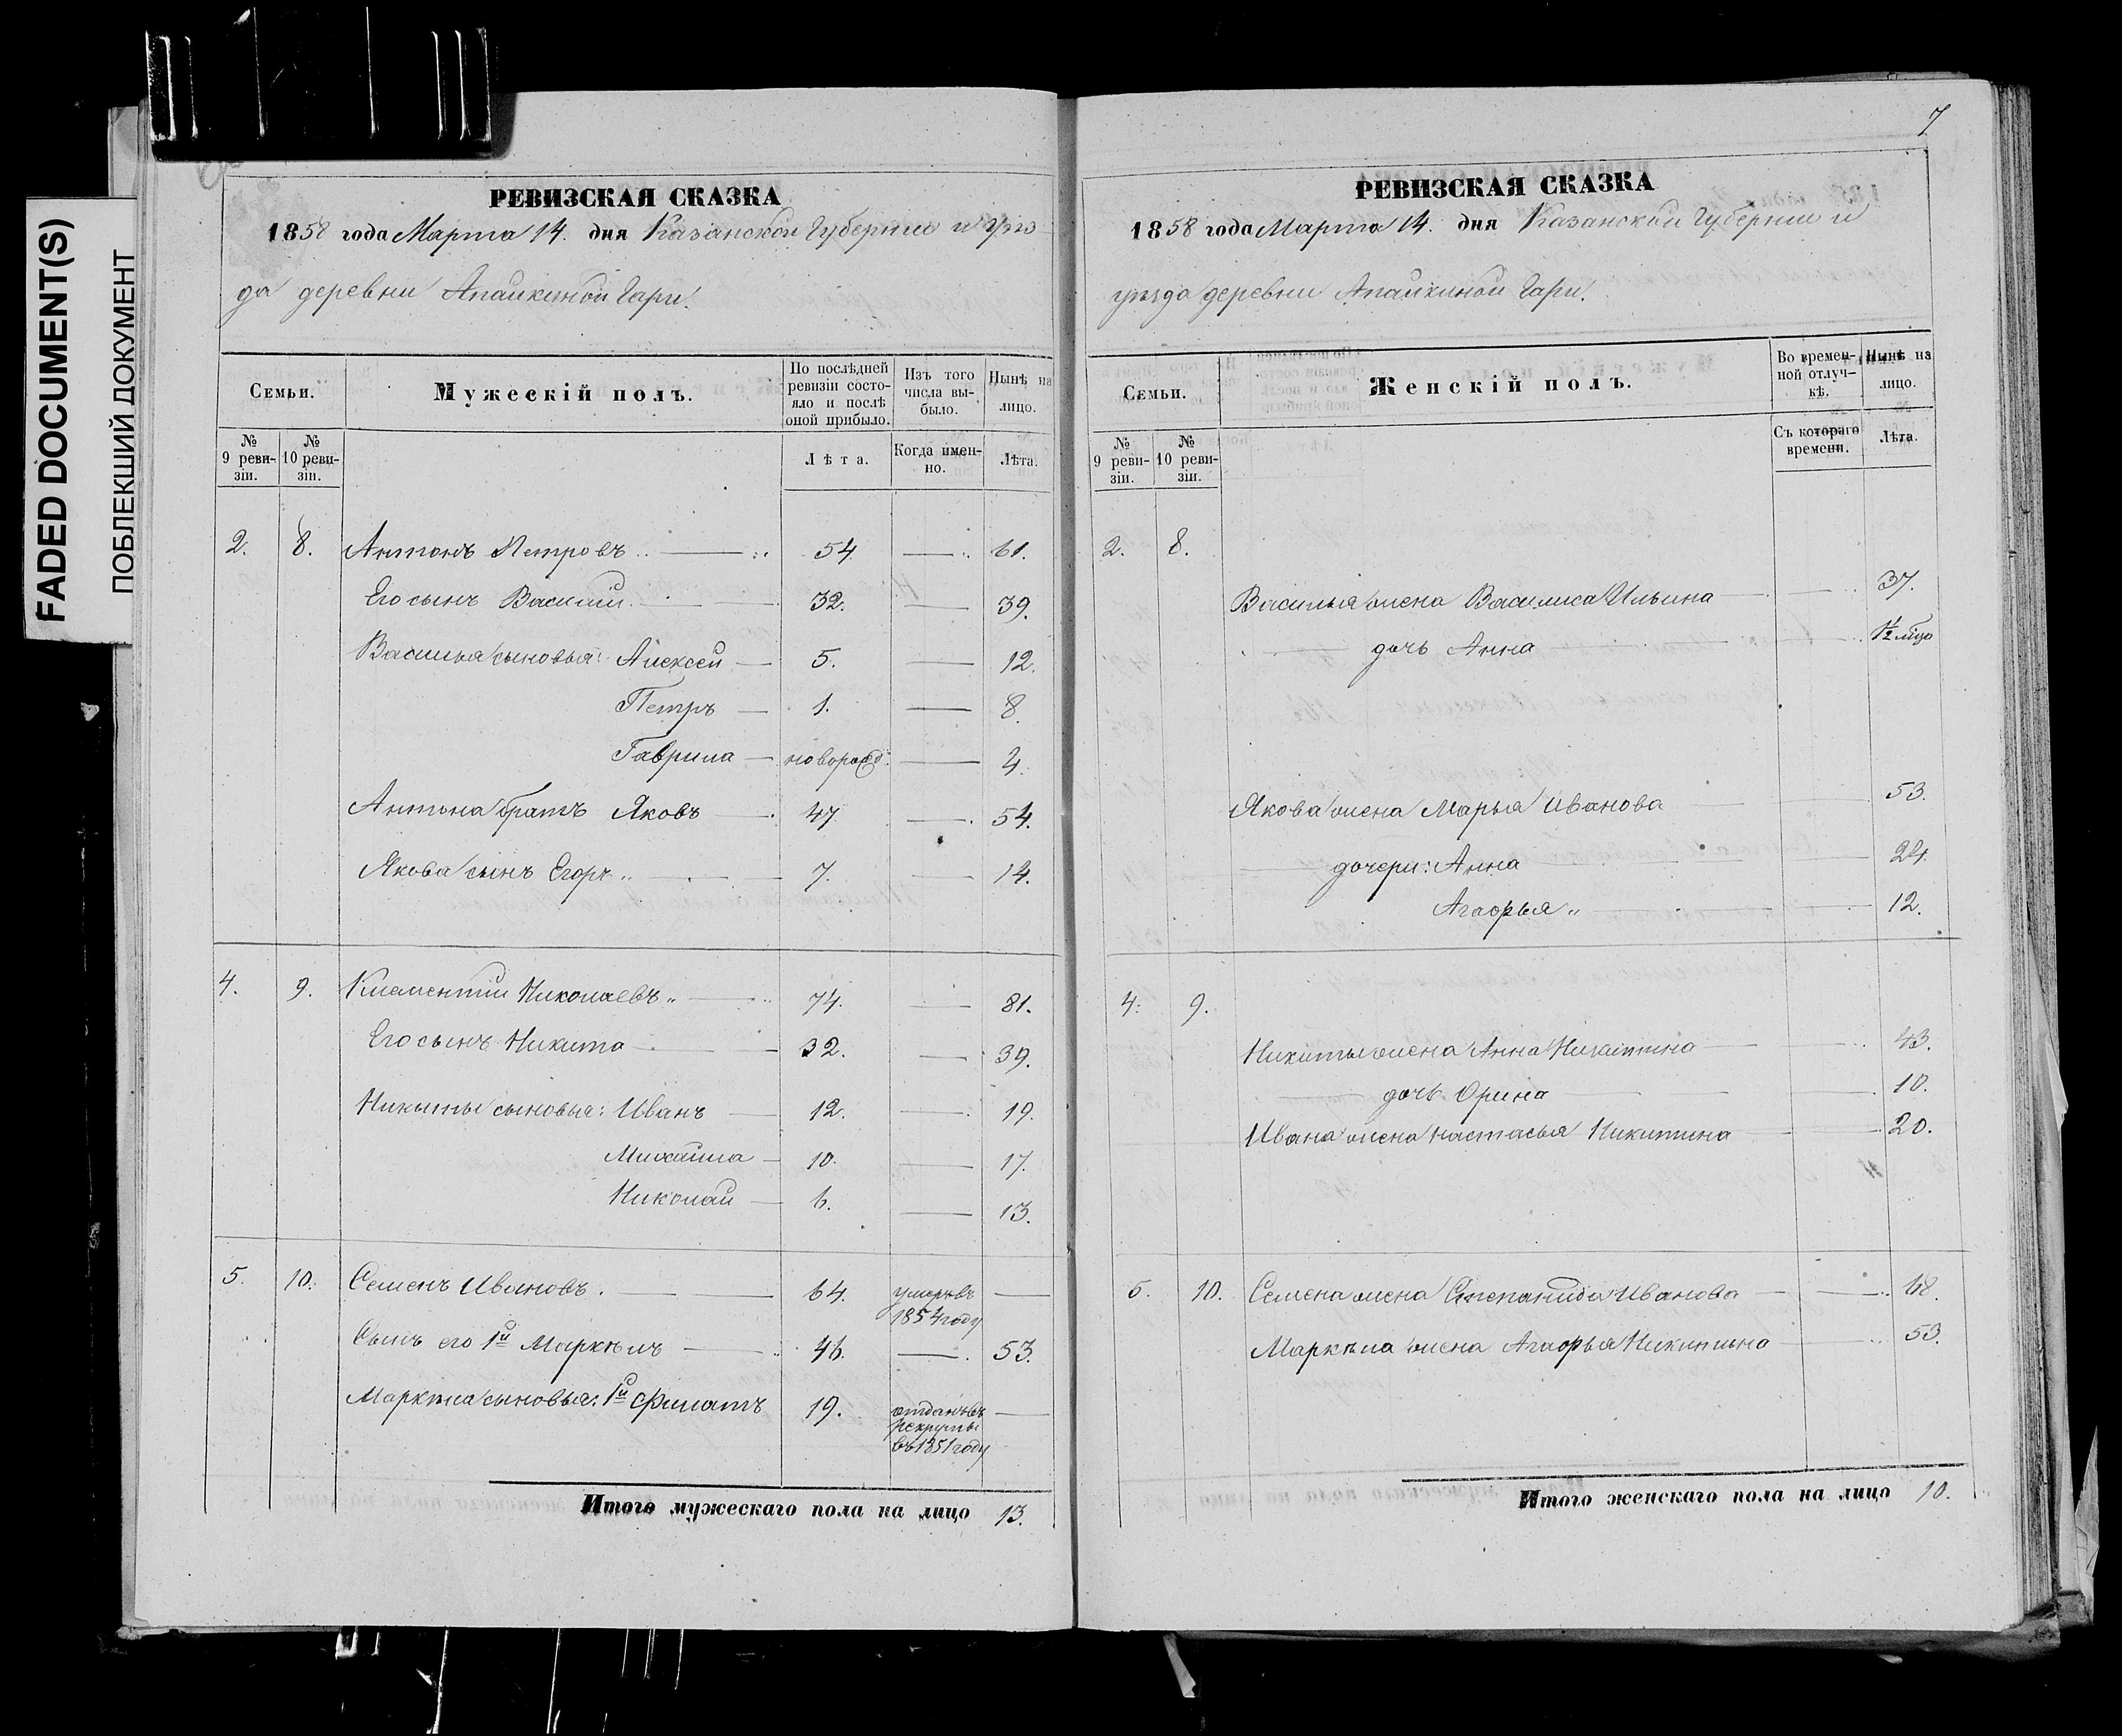 FADED DOCUMENT(S)
ПОБЛЕКШИЙ ДОКУМЕНТ
РЕВИЗСКАЯ СКАЗКА
1858 года Марта 14. дня Казанской Губернии и Уѣз
да деревни Апайкиной Гари.
Семьи.
Мужескій полъ.
По послѣдней ревизіи состояло и послѣ оной прибыло.
Изъ того числа выбыло.
Нынѣ на лицо.
№ 9 ревизіи.
№ 10 ревизіи.
Лѣта.
Когда именно.
Лѣта.
2. 8. Антонъ Петровъ 54. 61.
Его сынъ Василій 32. 39.
Василья сыновья: Алексей 5. 12.
Петръ 1. 8.
Гаврила новорожд. 4.
Антона братъ Яковъ 47 54.
Якова сынъ Егоръ 7. 14.
4. 9. Климентий Николаевъ 74. 81.
Его сынъ Никита 32. 39.
Никиты сыновья: Иванъ 12. 19.
Михайла 10. 17.
Николай 6. 13.
5. 10. Семенъ Ивановъ. 64. умеръ въ 1854 году
Сынъ его 1й Маркѣлъ 46. 53.
Маркѣла сыновья: 1й Филатъ 19. отданъ въ рекруты въ 1851 году
Итого мужескаго пола на лицо 13.
7
РЕВИЗСКАЯ СКАЗКА
1858 года Марта 14. дня Казанской Губернии и
уѣзда деревни Апайкиной Гари.
Семьи.
Женскій полъ.
Во временной отлучкѣ.
Нынѣ на лицо.
№ 9 ревизіи.
№ 10 ревизіи.
Съ котораго времени.
Лѣта.
2. 8.
Василья жена Василиса Ильина 37.
дочь Анна 1/2
Якова жена Марья Иванова 53.
дочери: Анна 24.
Агафья 12.
4. 9.
Никиты жена Анна Никитина 43.
дочь Орина 10.
Ивана жена Настасья Никитина 20.
5. 10. Семена жена Степанида Иванова 68.
Маркѣла жена Агафья Никитина 53.
Итого женскаго пола на лицо 10.